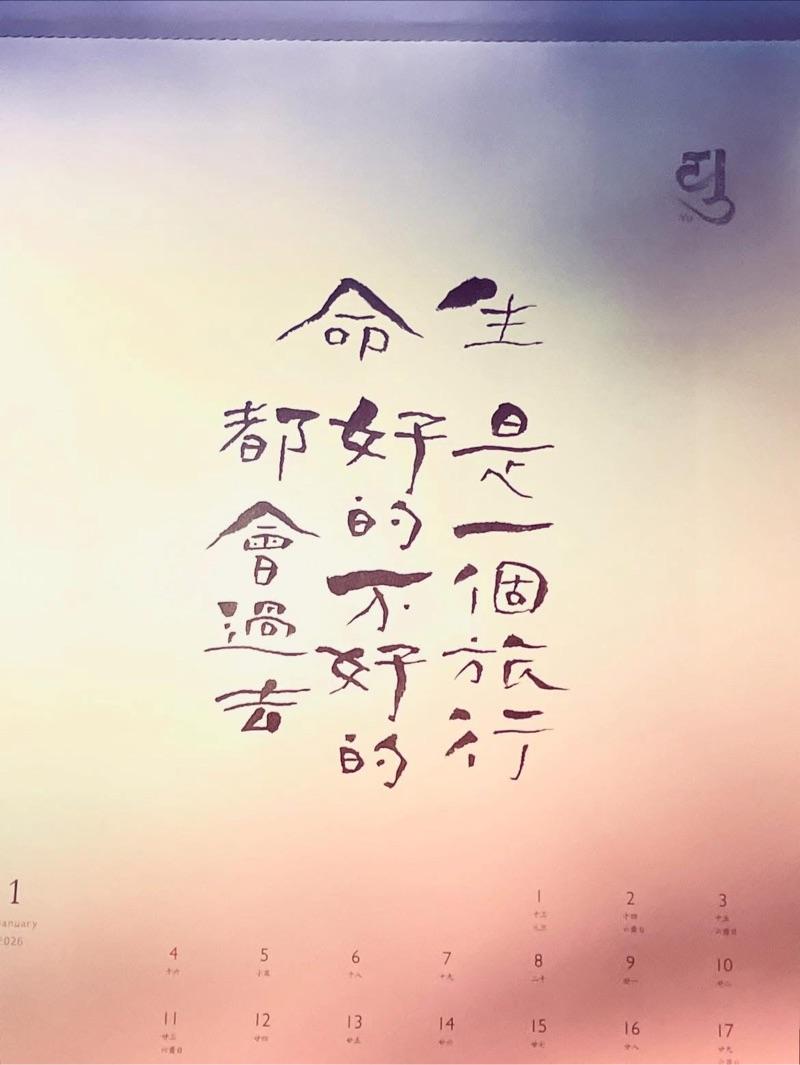 生命
是一個旅行
好的不好的
都會過去
Yu
1
January
2026
1 2 3
十三 十四 十五
4 5 6 7 8 9 10
十六 十八 十九 二十 廿一 廿二
11 12 13 14 15 16 17
廿三 廿四 廿五 廿六 廿七 廿八 廿九